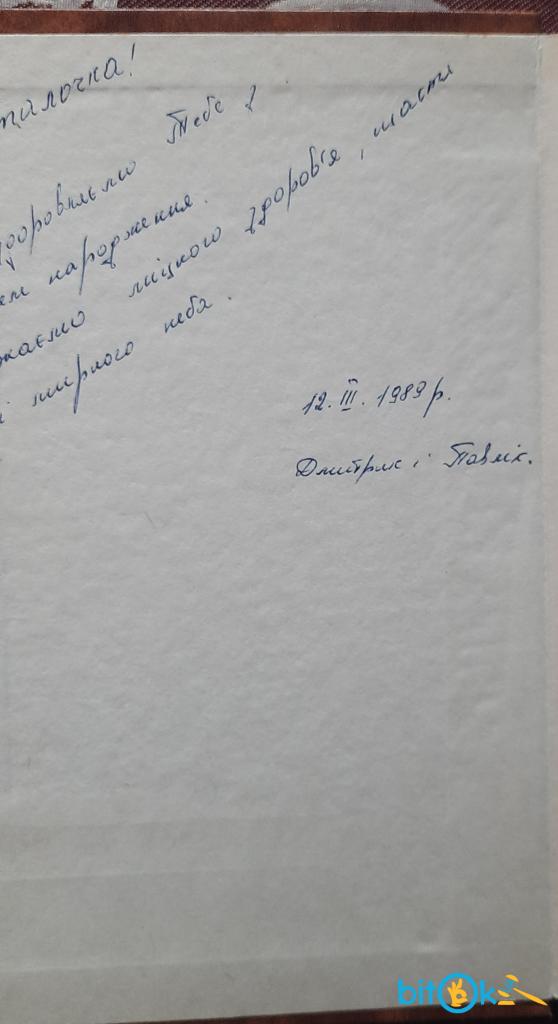 талочка!
здоровляємо Тебе з
ем народження.
жаємо міцкого здоров'я, щастя
і мирного неба.
12. III. 1989 р.
Дмитрик і Павлік.
bitok